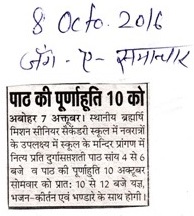 8 Octo. 2016
जॅग-ए-समाचार
पाठ की पूर्णाहूति 10 को
अबोहर 7 अक्तूबर। स्थानीय ब्रह्मर्षि
मिशन सीनियर सैकेंडरी स्कूल में नवरात्रों
के उपलक्ष्य में स्कूल के मन्दिर प्रांगण में
नित्य प्रति दुर्गासप्तशती पाठ सांय 4 से 6
बजे व पाठ की पूर्णाहूति 10 अक्टूबर
सोमवार को प्रात: 10 से 12 बजे यज्ञ,
भजन-कीर्तन एवं भण्डारे के साथ होगी।